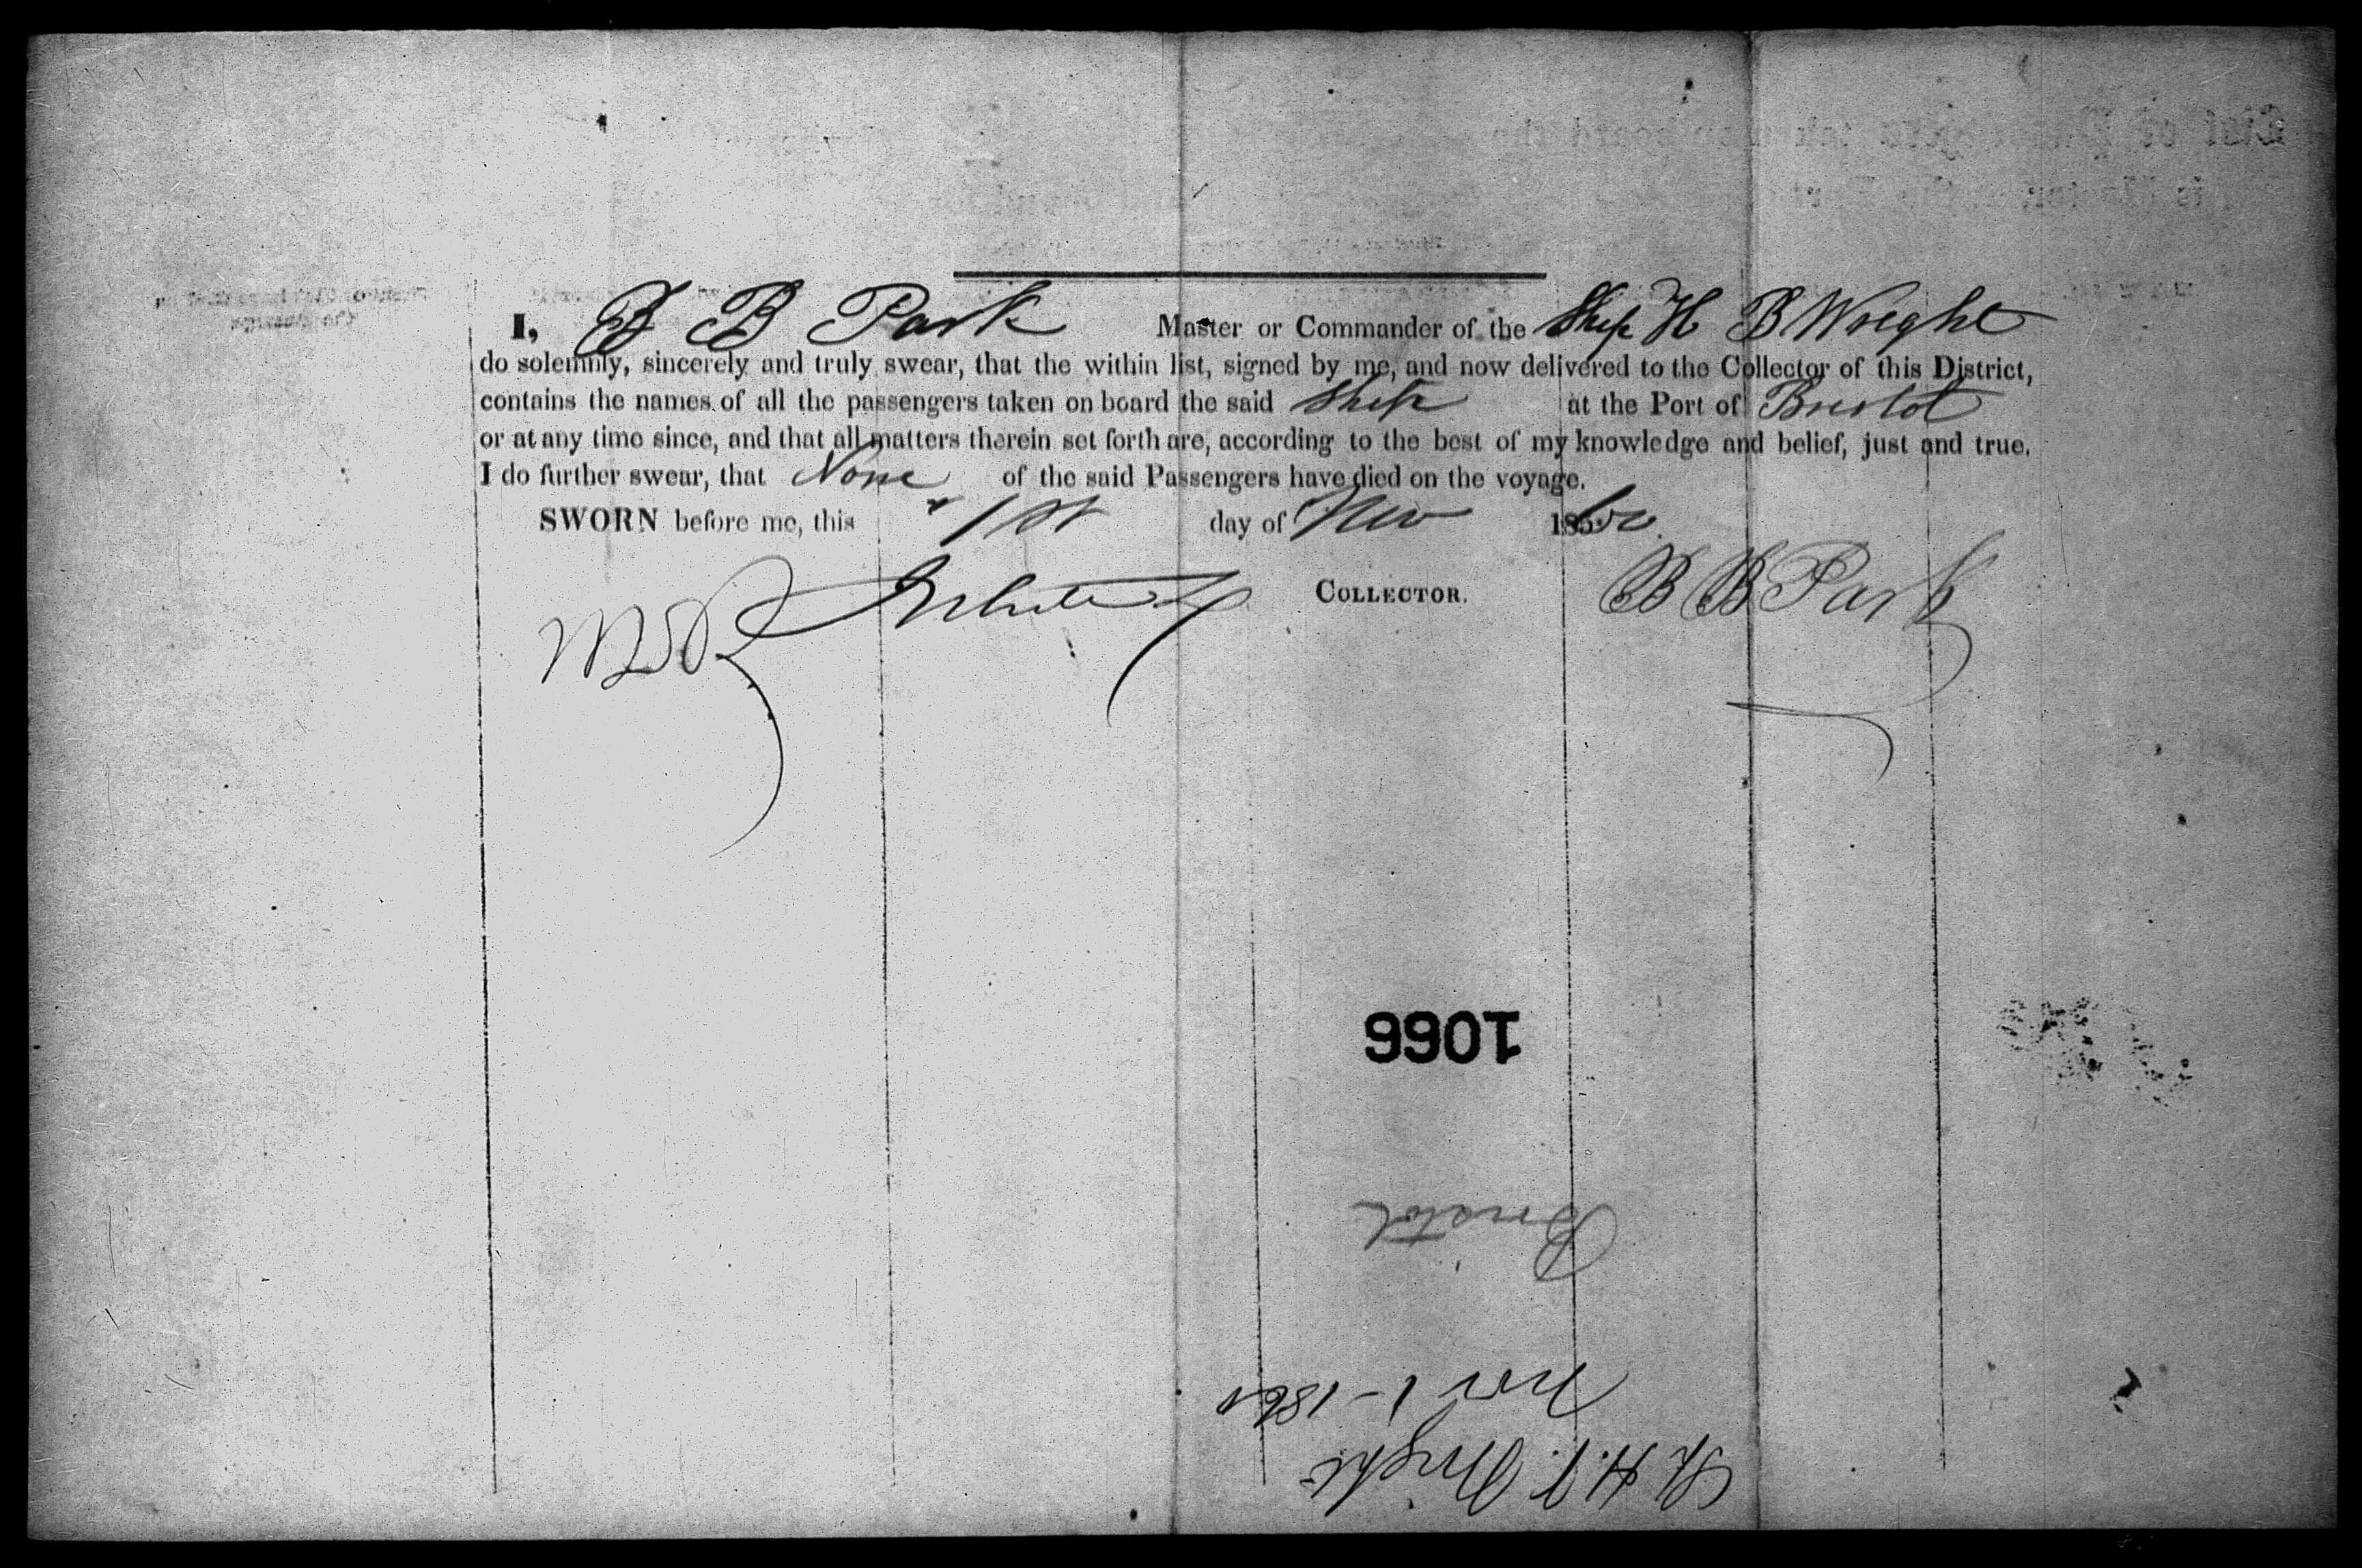 I, B B Park Master or Commander of the Ship H B Wright
do solemnly, sincerely and truly swear, that the within list, signed by me, and now delivered to the Collector of this District,
contains the names of all the passengers taken on board the said Ship at the Port of Bristol
or at any time since, and that all matters therein set forth are, according to the best of my knowledge and belief, just and true.
I do further swear, that None of the said Passengers have died on the voyage.
SWORN before me, this 1st day of Nov 1860
COLLECTOR. B B Park
1066
Bristol
Nov 1 - 1860
Wright